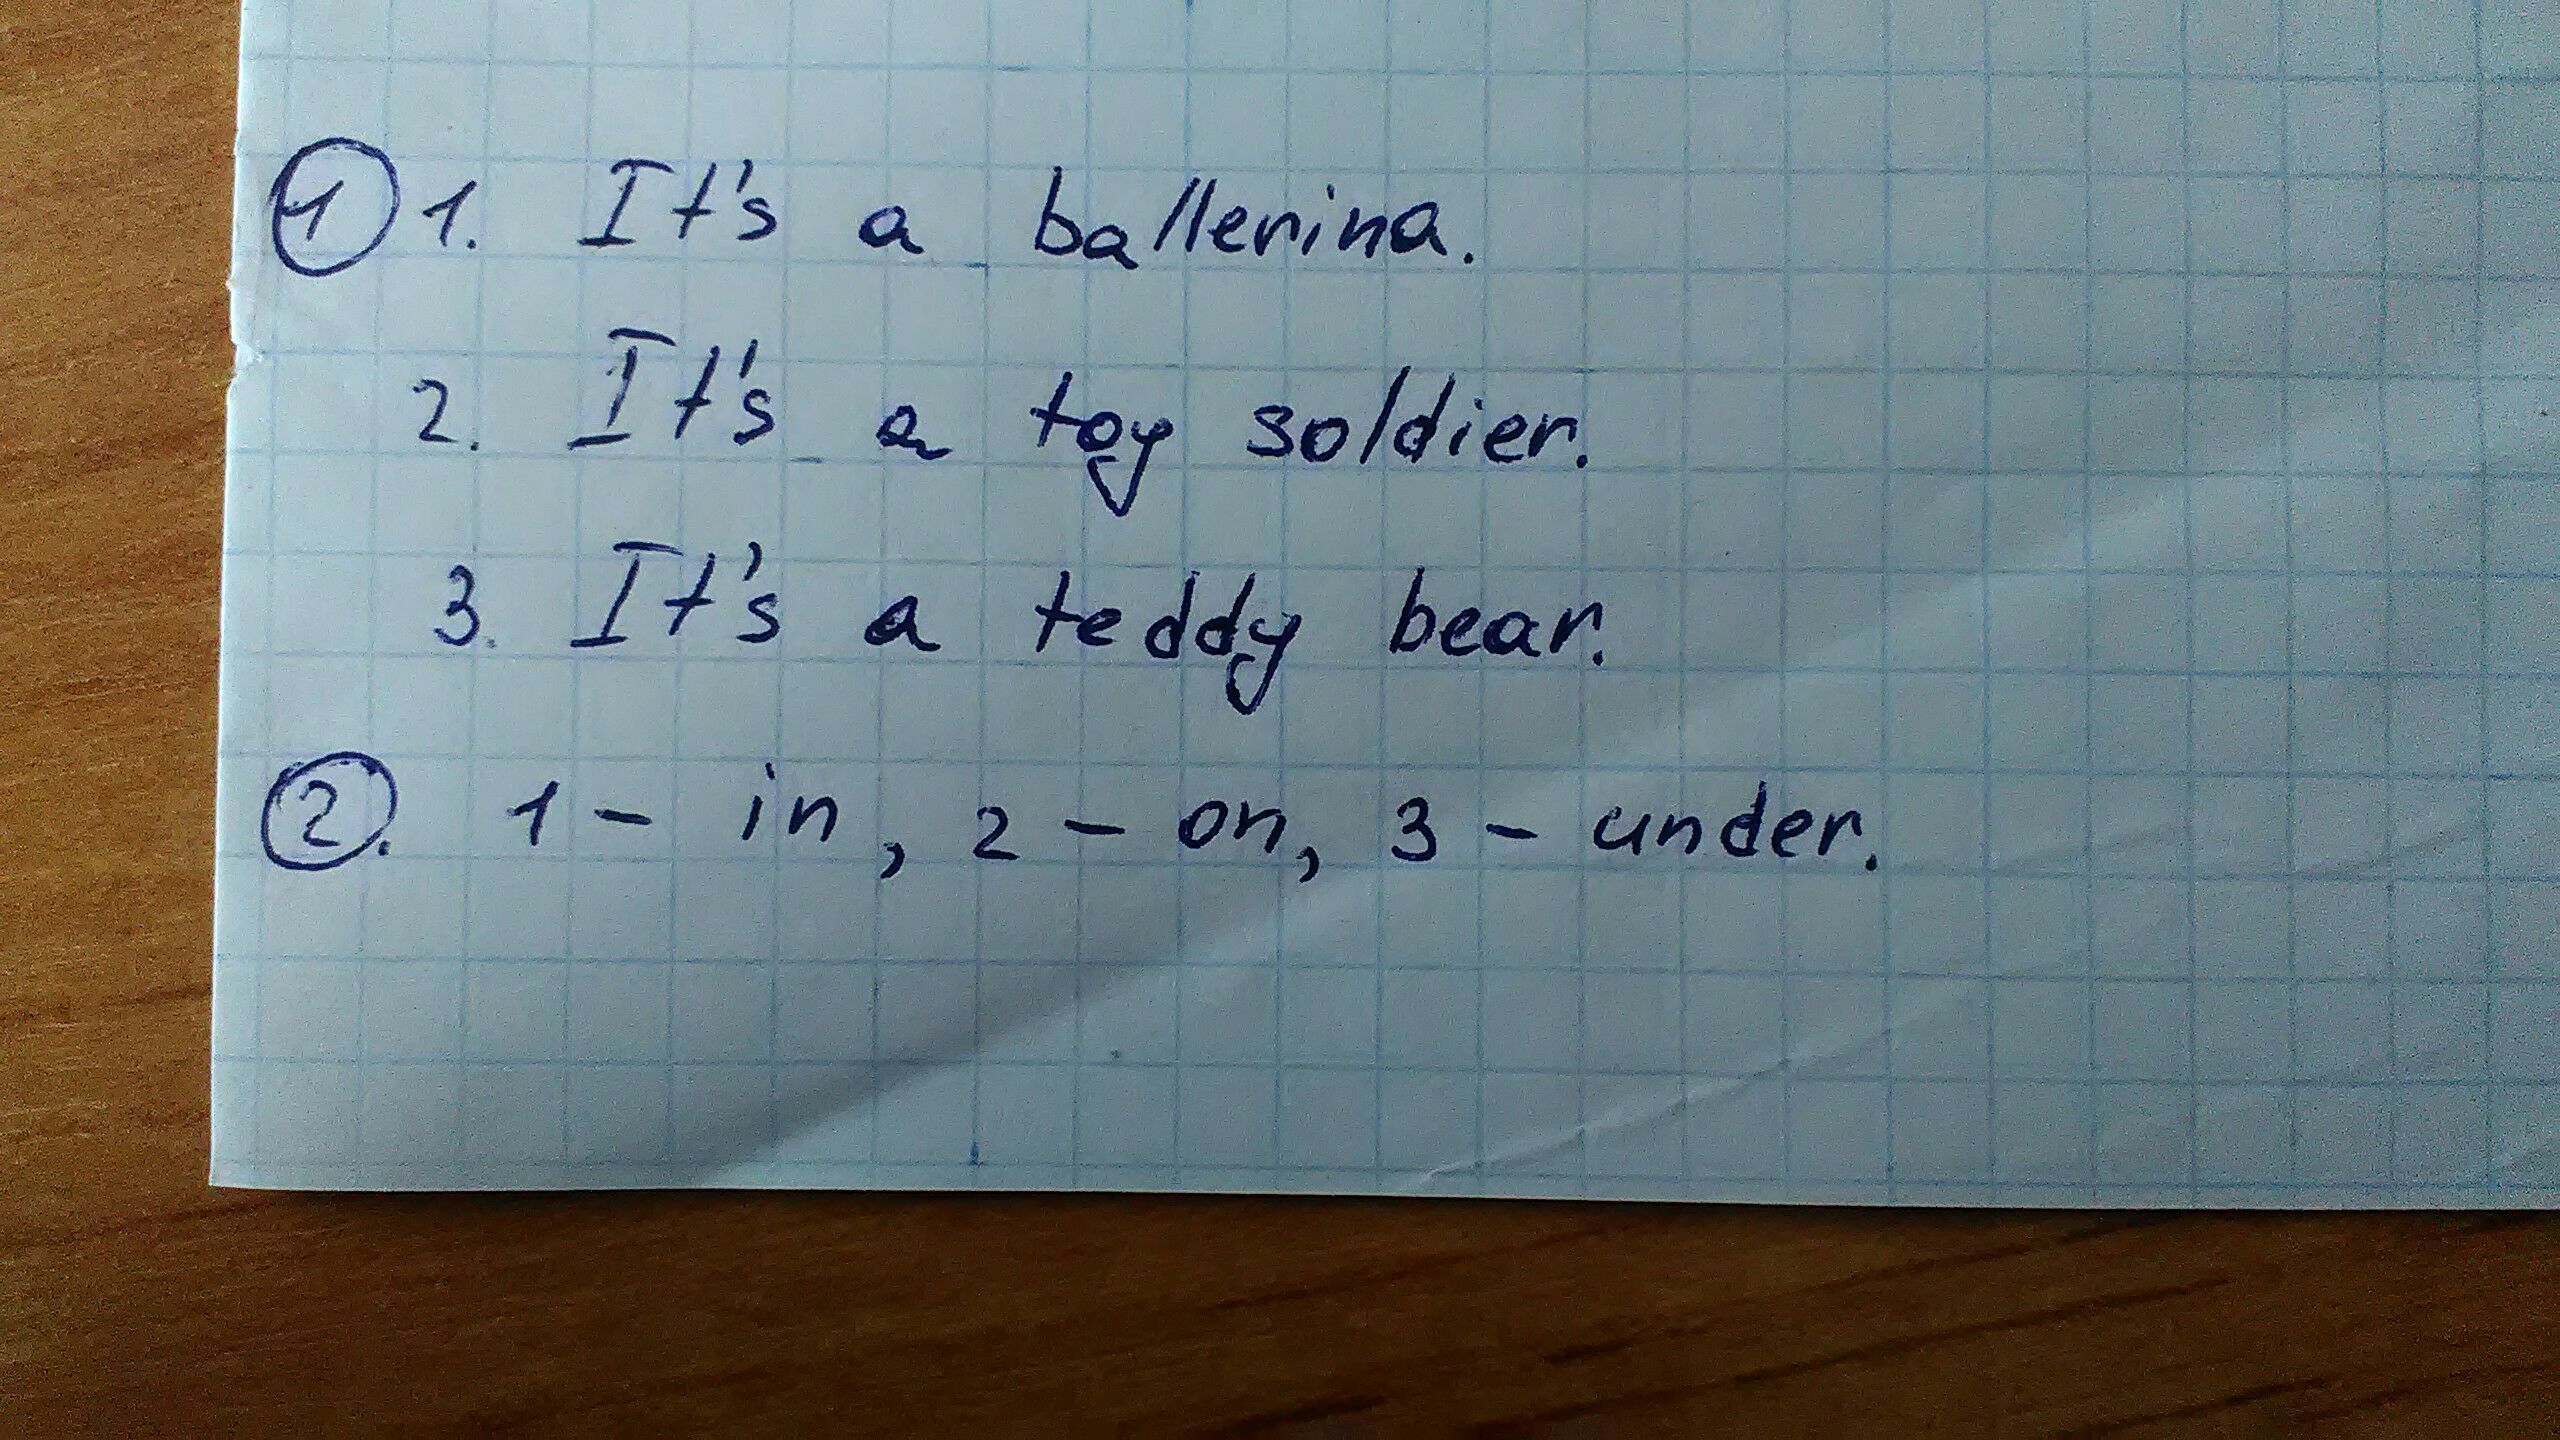 1 1. It's a ballerina.
2. It's a toy soldier.
3. It's a teddy bear.
2. 1 – in, 2 – on, 3 – under.